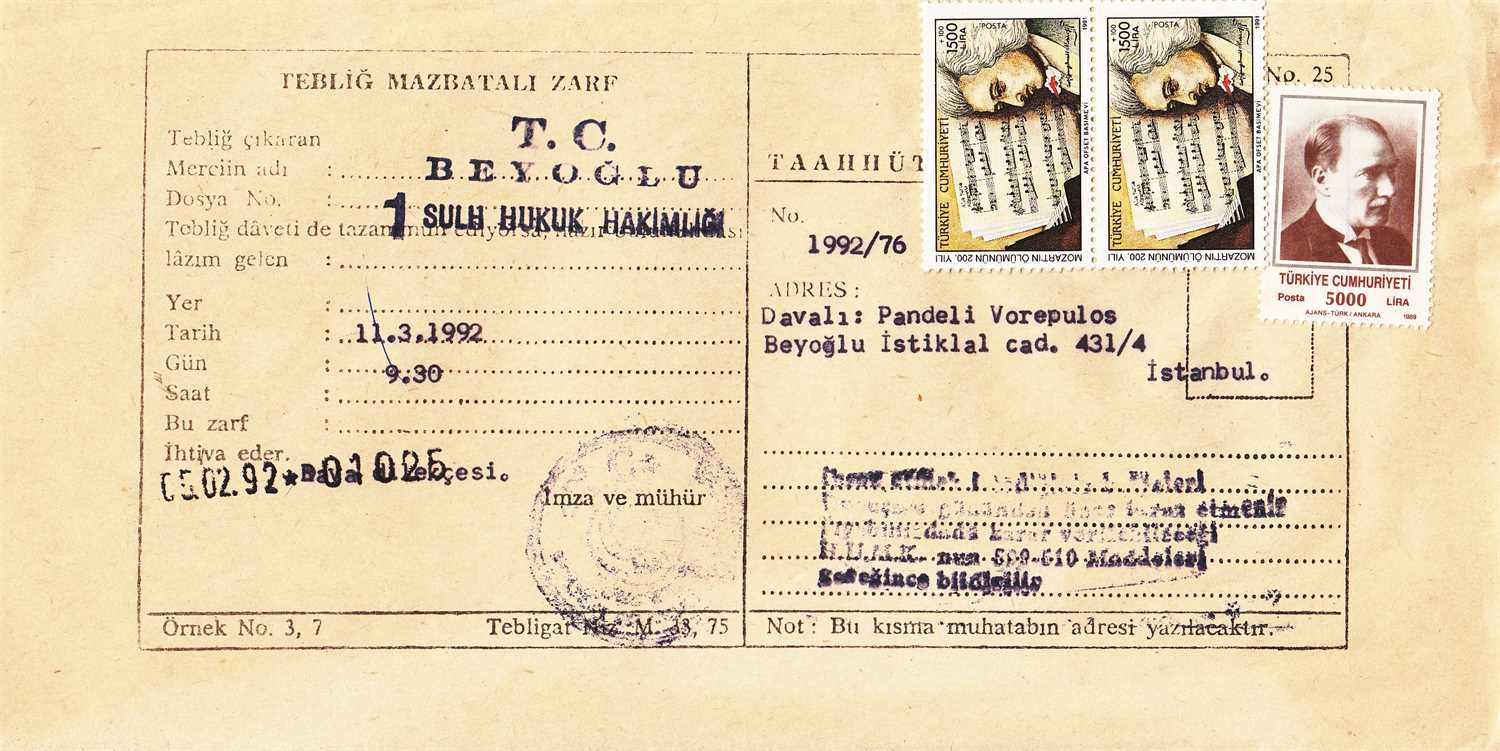 TEBLİĞ MAZBATALI ZARF
Tebliğ çıkaran
Merciin adı :
T. C.
BEYOĞLU
Dosya No. :
1 SULH HUKUK HAKİMLİĞİ
Tebliğ dâveti de tazammun ediyorsa, hazır
lâzım gelen :
Yer :
Tarih : 11.3.1992
Gün : 9.30
Saat :
Bu zarf :
İhtiva eder.
05.02.92*01025
Dava dilekçesi.
İmza ve mühür
Örnek No. 3, 7
Tebligat Niz. M. 33, 75
No. 25
TAAHHÜT
No.
1992/76
ADRES :
Davalı: Pandeli Vorepulos
Beyoğlu İstiklal cad. 431/4
İstanbul.
gününden önce ibraz etmeniz
karar verilebileceği
H.U.M.K. nun 509-510 Maddeleri
gereğince bildirilir
Not : Bu kısma muhatabın adresi yazılacaktır.
1500 LİRA
+100
POSTA
1991
TÜRKİYE CUMHURİYETİ
MOZART'IN ÖLÜMÜNÜN 200. YILI
APA OFSET BASIMEVİ
1500 LİRA
+100
POSTA
1991
TÜRKİYE CUMHURİYETİ
MOZART'IN ÖLÜMÜNÜN 200. YILI
APA OFSET BASIMEVİ
TÜRKİYE CUMHURİYETİ
Posta 5000 LİRA
AJANS-TÜRK/ANKARA 1989